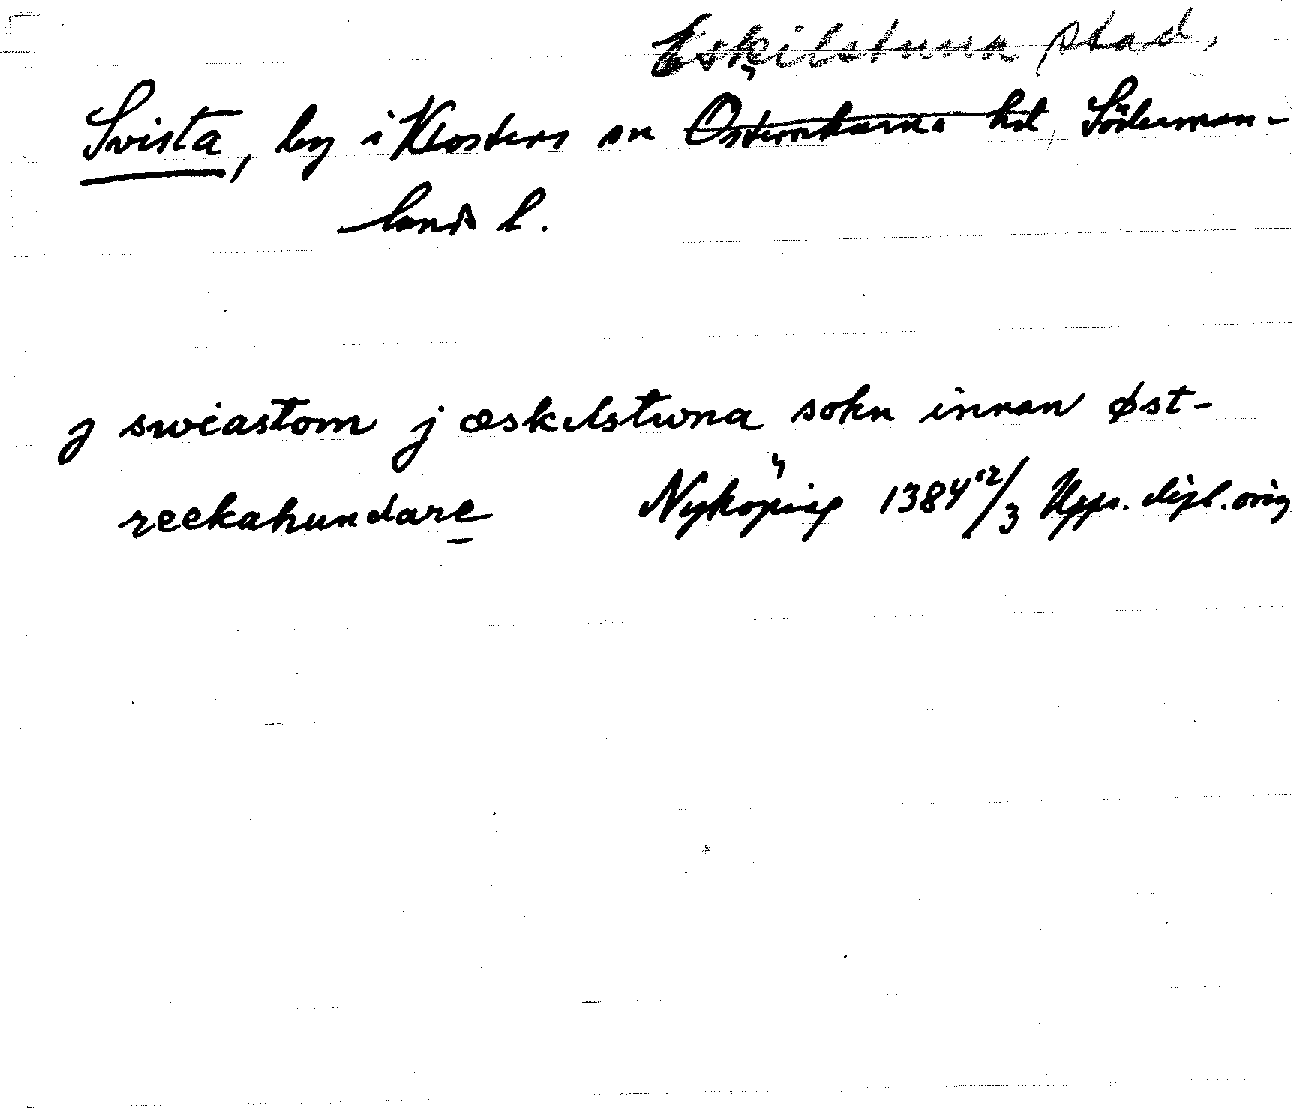 Eskilstuna stad,
Svista, by i Klosters sn Österrekarne hd, Söderman-
lands l.
j swiastom j æskilstwna sokn innan øst-
reekahundare Nyköping 1384 12/3 Upps. dipl. orig